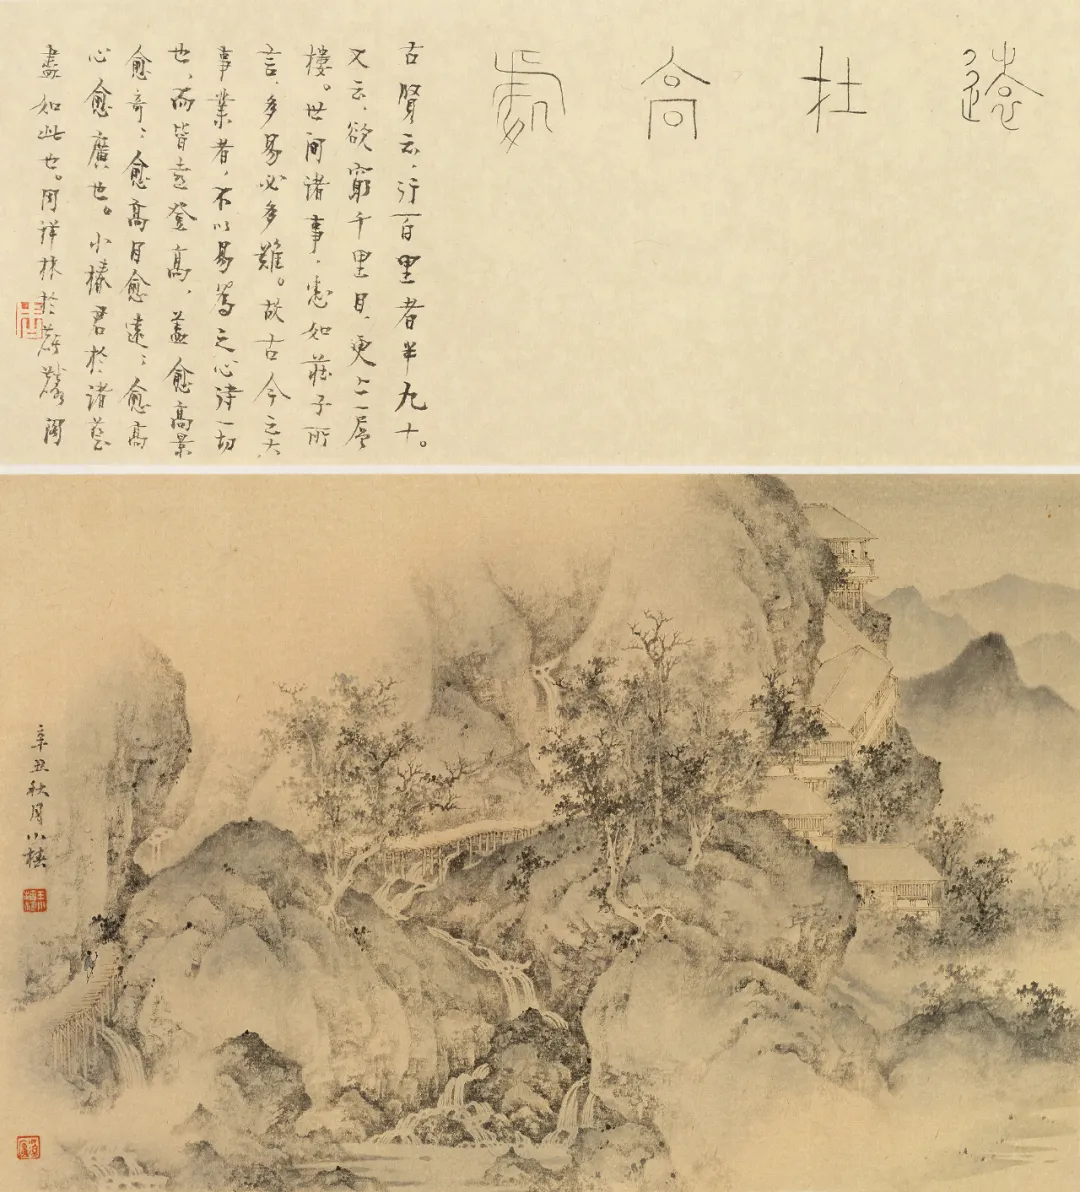 遠在高處
古賢云，行百里者半九十。
又云，欲窮千里目，更上一層
樓。世间諸事，悉如莊子所
言，多易必多難。故古今之大
事業者，不以易為之心待一切
也，而皆遠登高，蓋愈高景
愈奇；愈高目愈遠；愈高
心愈廣也。小椿君於諸藝
盡如此也。周祥林於
辛丑秋月小椿